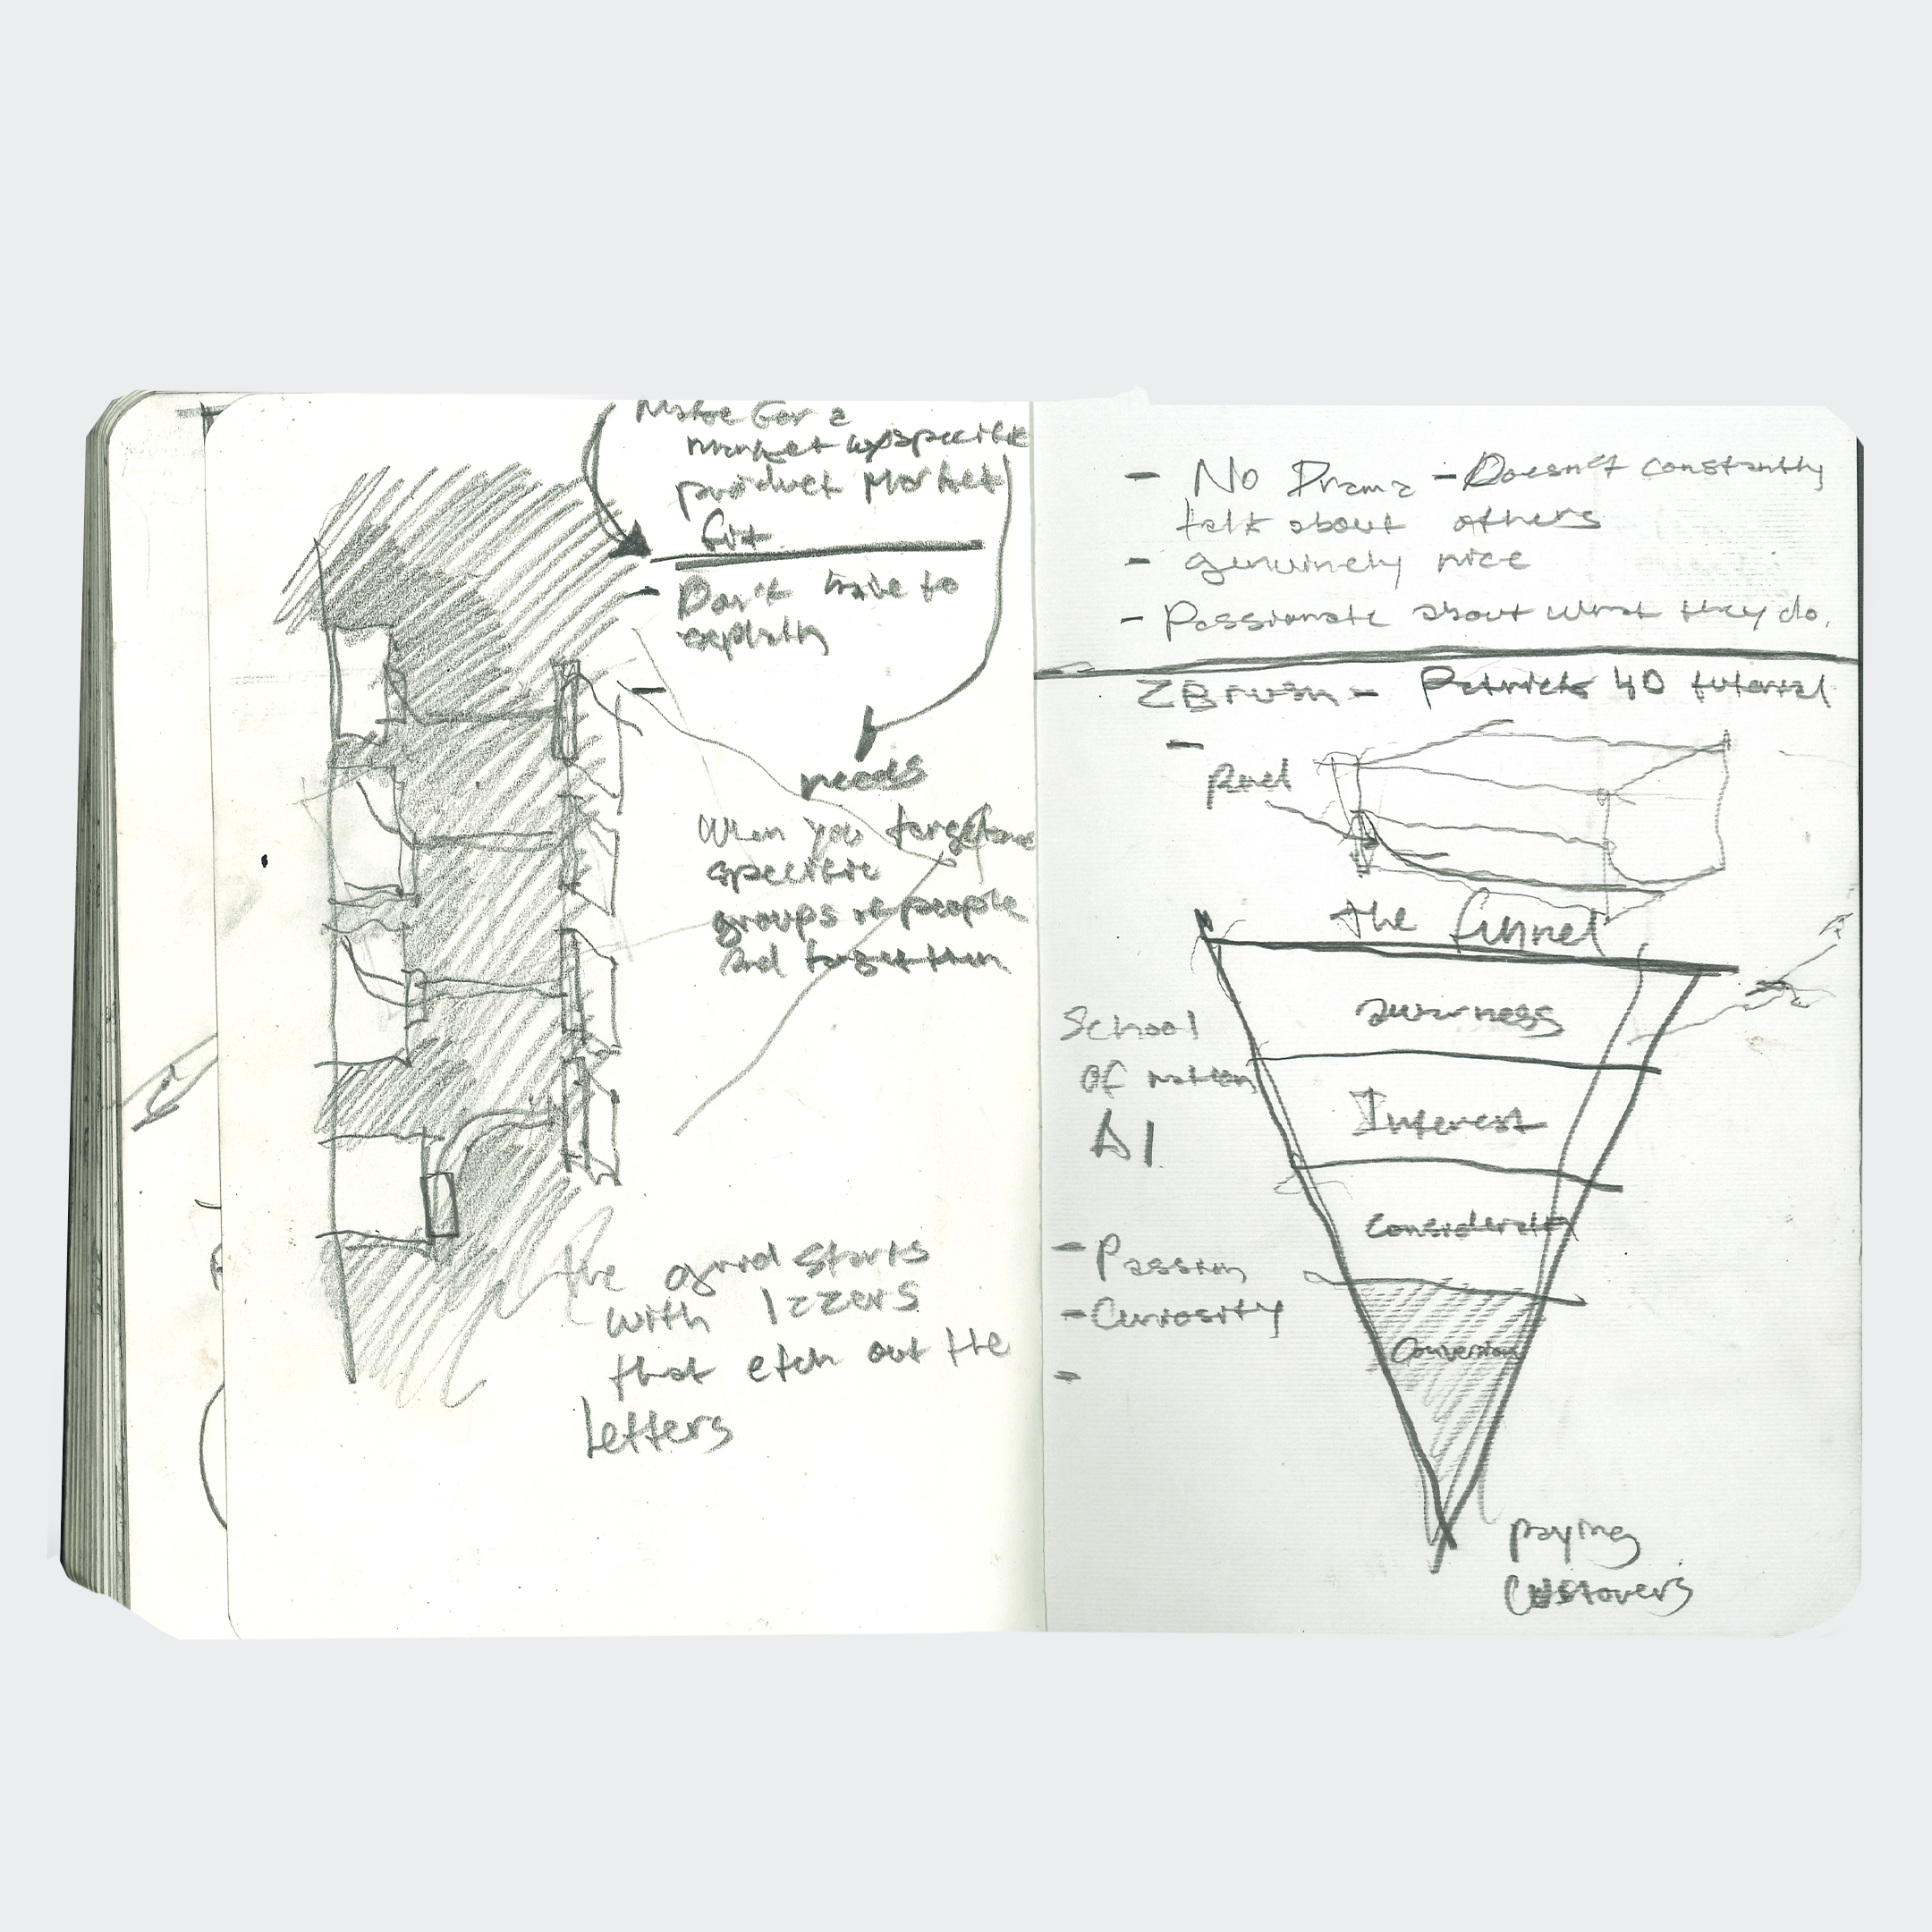 Make for a
market w/ specific
product market
fit
- Don't have to
explain
-
needs
When you target
specific
groups of people
and target them
the grid starts
with lazers
that etch out the
letters
- No Drama - Doesn't constantly
talk about others
- genuinely nice
- Passionate about what they do.
ZBrush - Patricks 4D tutorial
-
the funnel
awarness
Interest
Conversion
paying
customers
School
of motion
- Passion
- Curiosity
-